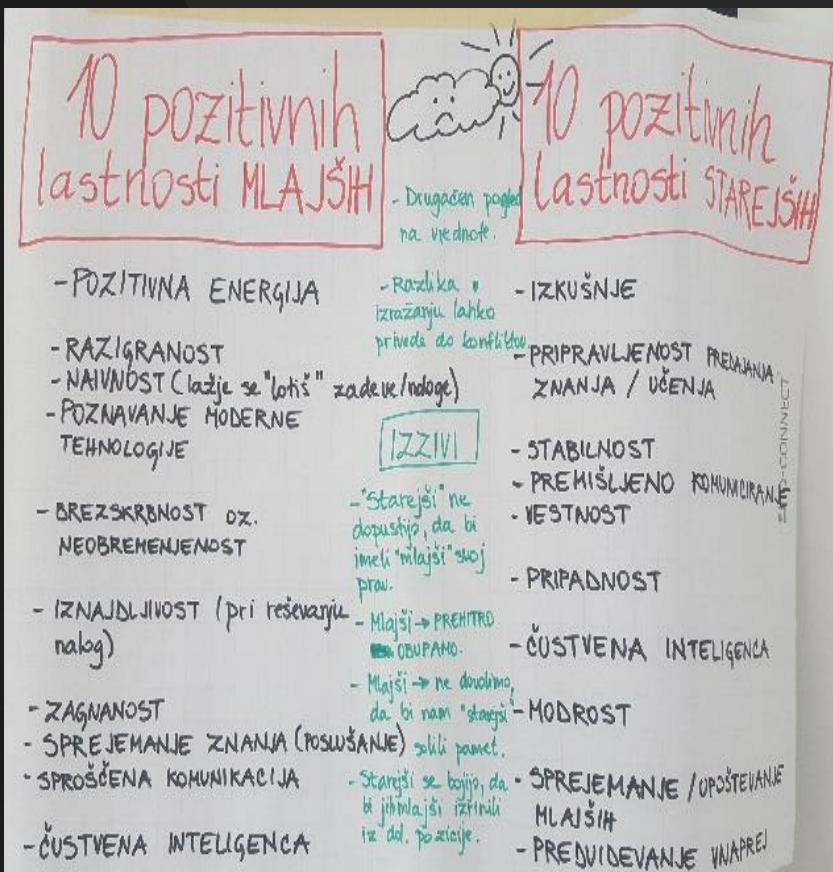 10 pozitivnih
lastnosti MLAJŠIH
- POZITIVNA ENERGIJA
- RAZIGRANOST
- NAIVNOST (lažje se "lotiš" zadeve/naloge)
- POZNAVANJE MODERNE
TEHNOLOGIJE
- BREZSKRBNOST OZ.
NEOBREMENJENOST
- IZNAJDLJIVOST (pri reševanju
nalog)
- ZAGNANOST
- SPREJEMANJE ZNANJA (POSLUŠANJE)
- SPROŠČENA KOMUNIKACIJA
- ČUSTVENA INTELIGENCA
- Drugačen pogled
na vrednote.
- Razlika v
izražanju lahko
privede do konfliktov
IZZIVI
- "Starejši" ne
dopustijo, da bi
imeli "mlajši" svoj
prav.
- Mlajši → PREHITRO
OBUPAMO.
- Mlajši → ne dovolimo,
da bi nam "starejši"
solili pamet.
- Starejši se bojijo, da
bi jih mlajši izrinili
iz dol. pozicije.
10 pozitivnih
lastnosti STAREJŠIH
- IZKUŠNJE
- PRIPRAVLJENOST PREDAJANJA
ZNANJA / UČENJA
- STABILNOST
- PREMIŠLJENO KOMUNICIRANJE
- VESTNOST
- PRIPADNOST
- ČUSTVENA INTELIGENCA
- MODROST
- SPREJEMANJE / UPOŠTEVANJE
MLAJŠIH
- PREDVIDEVANJE VNAPREJ